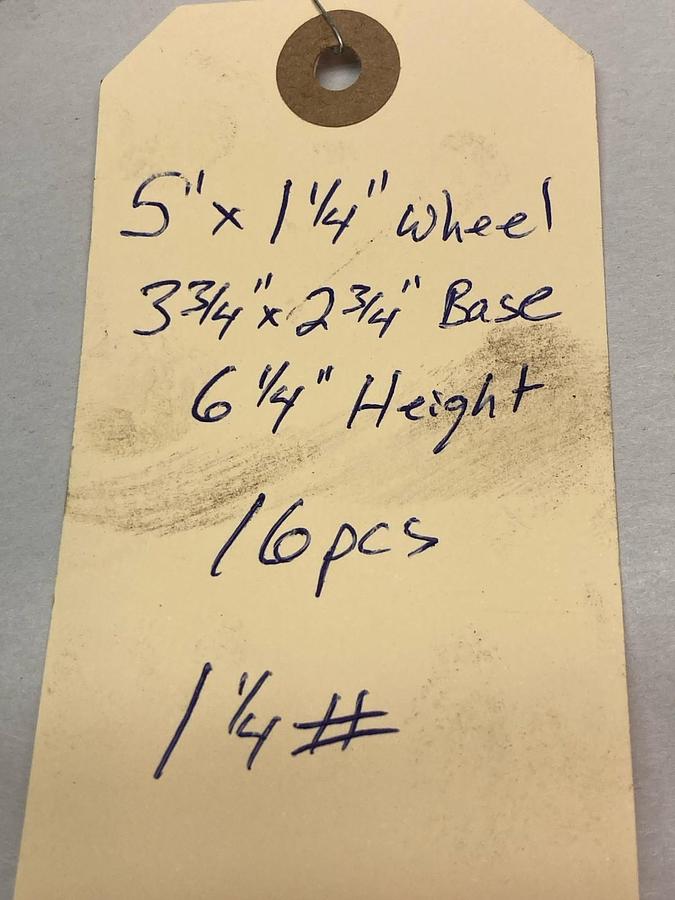 5" x 1 1/4" wheel
3 3/4" x 2 3/4" Base
6 1/4" Height
16pcs
1 1/4 #